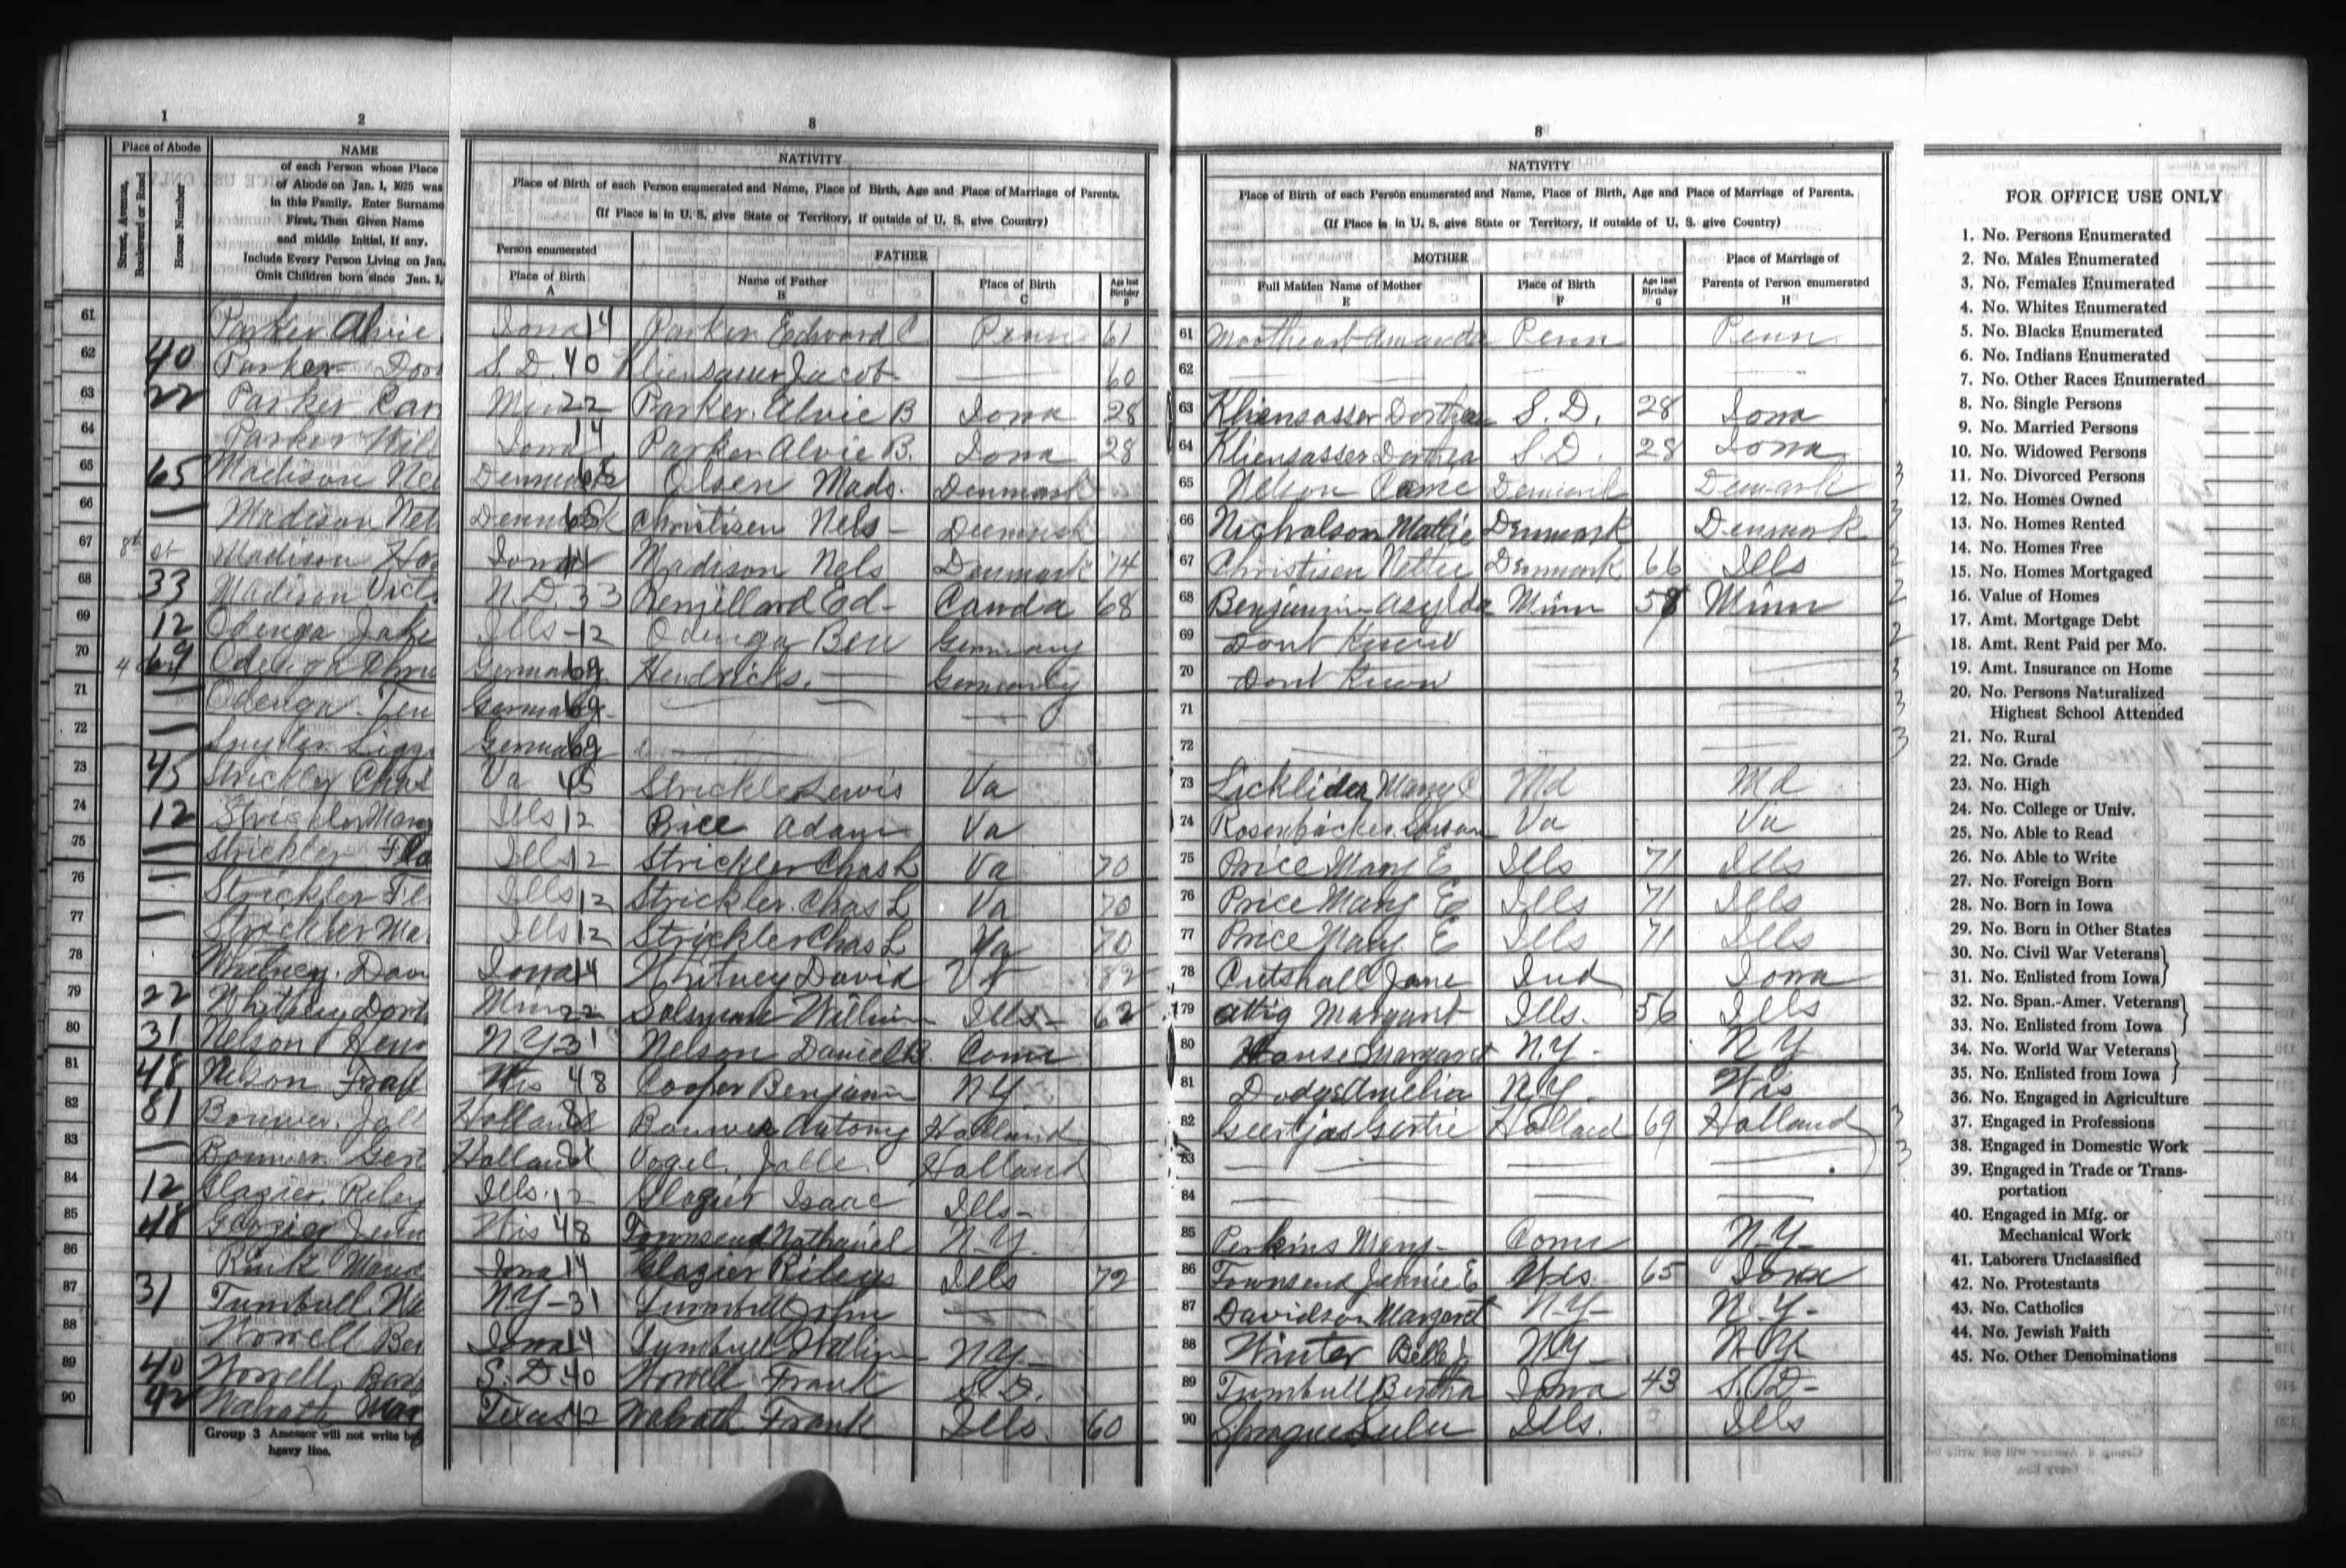 1 2 8 8
Place of Abode
Street, Avenue, Boulevard or Road
House Number
NAME
of each Person whose Place
of Abode on Jan. 1, 1925 was
in this Family. Enter Surname
First, Then Given Name
and middle Initial, If any.
Include Every Person Living on Jan.
Omit Children born since Jan. 1,
NATIVITY
Place of Birth of each Person enumerated and Name, Place of Birth, Age and Place of Marriage of Parents.
(If Place is in U. S. give State or Territory, if outside of U. S. give Country)
Person enumerated
Place of Birth
A
FATHER
Name of Father
B
Place of Birth
C
Age last Birthday
D
NATIVITY
Place of Birth of each Person enumerated and Name, Place of Birth, Age and Place of Marriage of Parents.
(If Place is in U. S. give State or Territory, if outside of U. S. give Country)
MOTHER
Full Maiden Name of Mother
E
Place of Birth
F
Age last Birthday
G
Place of Marriage of
Parents of Person enumerated
H
61 Parker Alvie Iowa 14 Parker Edward C Penn 61 61 Amanda Penn Penn
62 40 Parker Dor S. D. 40 Jacob — 60 62 — — —
63 22 Parker Car Min 22 Parker Alvie B Iowa 28 63 Kliensasser Dorthea S. D. 28 Iowa
64 Parker Will Iowa 14 Parker Alvie B. Iowa 28 64 Kliensasser Dorthea S. D. 28 Iowa
65 65 Madison Nel Denmark 65 Olsen Mads. Denmark 65 Nelson Denmark Denmark 3
66 — Madison Net Denmark 65 Christisen Nels — Denmark 66 Nicholson Mattie Denmark Denmark 3
67 8th st Madison Ho Iowa 14 Madison Nels Denmark 74 67 Christisen Nettie Denmark 66 Ills 2
68 33 Madison Vict N. D. 33 Remillard Ed — Canda 68 68 Benjimin Minn 58 Minn 2
69 12 Odenga Jake Ills — 12 Odenga Ben Germany 69 Dont Know 2
70 69 Odenga Germany 69 Hendricks. — Germany 70 Dont Know 3
71 — Odenga Germany 69 — — 71 — 3
72 — Snyder Germany 69 — — 72 — 3
73 45 Strickler Chas Va 45 Strickler Lewis Va 73 Licklider Mary C Md Md
74 12 Strickler Mary Ills 12 Adam Va 74 Susan Va Va
75 — Strickler Flo Ills 12 Strickler Chas L Va 70 75 Price Mary E Ills 71 Ills
76 — Strickler Ills 12 Strickler Chas L Va 70 76 Price Mary E Ills 71 Ills
77 — Strickler Ma Ills 12 Strickler Chas L Va 70 77 Price Mary E Ills 71 Ills
78 Whitney Dav Iowa 14 Whitney David 82 78 Cutshall Jane Ind Iowa
79 22 Whitney Dort Min 22 William Ills — 62 79 Attig Margaret Ills. 56 Ills
80 31 Nelson Hen NY 31 Nelson Daniel B. Conn 80 Margaret N.Y — N Y
81 48 Nelson Wis 48 Cooper Benjamin N Y 81 Dodge Amelia N. Y. Wis
82 81 Bouwer Holland 81 Bouwer Antony Holland 82 Gertie Holland 69 Holland 3
83 — Bouwer Gert Holland 81 Vogel Jelle Holland 83 — — — 3
84 12 Glazier, Riley Ills. 12 Glazier Isaac Ills — 84 — — —
85 48 Glazier Jenn Wis 48 Townsend Nathaniel N. Y. 85 Perkins Mary — Conn N. Y —
86 Rink Maud Iowa 14 Glazier Riley Ills 72 86 Townsend Jennie E Wis 65 Iowa
87 31 Turnbull. NY — 31 Turnbull John — 87 Davidson Margaret N. Y — N. Y —
88 Norvell Ber Iowa 14 Turnbull N Y — 88 Winter Belle J. N. Y — N. Y
89 40 Norvell S. D. 40 Norvell Frank S. D. 89 Turnbull Bertha Iowa 43 S. D —
90 42 Walrath Mar Texas 42 Walrath Frank Ills. 60 90 Sprague Lulu Ills. Ills
Group 3 Assessor will not write be
heavy line.
FOR OFFICE USE ONLY
1. No. Persons Enumerated
2. No. Males Enumerated
3. No. Females Enumerated
4. No. Whites Enumerated
5. No. Blacks Enumerated
6. No. Indians Enumerated
7. No. Other Races Enumerated
8. No. Single Persons
9. No. Married Persons
10. No. Widowed Persons
11. No. Divorced Persons
12. No. Homes Owned
13. No. Homes Rented
14. No. Homes Free
15. No. Homes Mortgaged
16. Value of Homes
17. Amt. Mortgage Debt
18. Amt. Rent Paid per Mo.
19. Amt. Insurance on Home
20. No. Persons Naturalized
Highest School Attended
21. No. Rural
22. No. Grade
23. No. High
24. No. College or Univ.
25. No. Able to Read
26. No. Able to Write
27. No. Foreign Born
28. No. Born in Iowa
29. No. Born in Other States
30. No. Civil War Veterans
31. No. Enlisted from Iowa
32. No. Span.-Amer. Veterans
33. No. Enlisted from Iowa
34. No. World War Veterans
35. No. Enlisted from Iowa
36. No. Engaged in Agriculture
37. Engaged in Professions
38. Engaged in Domestic Work
39. Engaged in Trade or Trans-
portation
40. Engaged in Mfg. or
Mechanical Work
41. Laborers Unclassified
42. No. Protestants
43. No. Catholics
44. No. Jewish Faith
45. No. Other Denominations